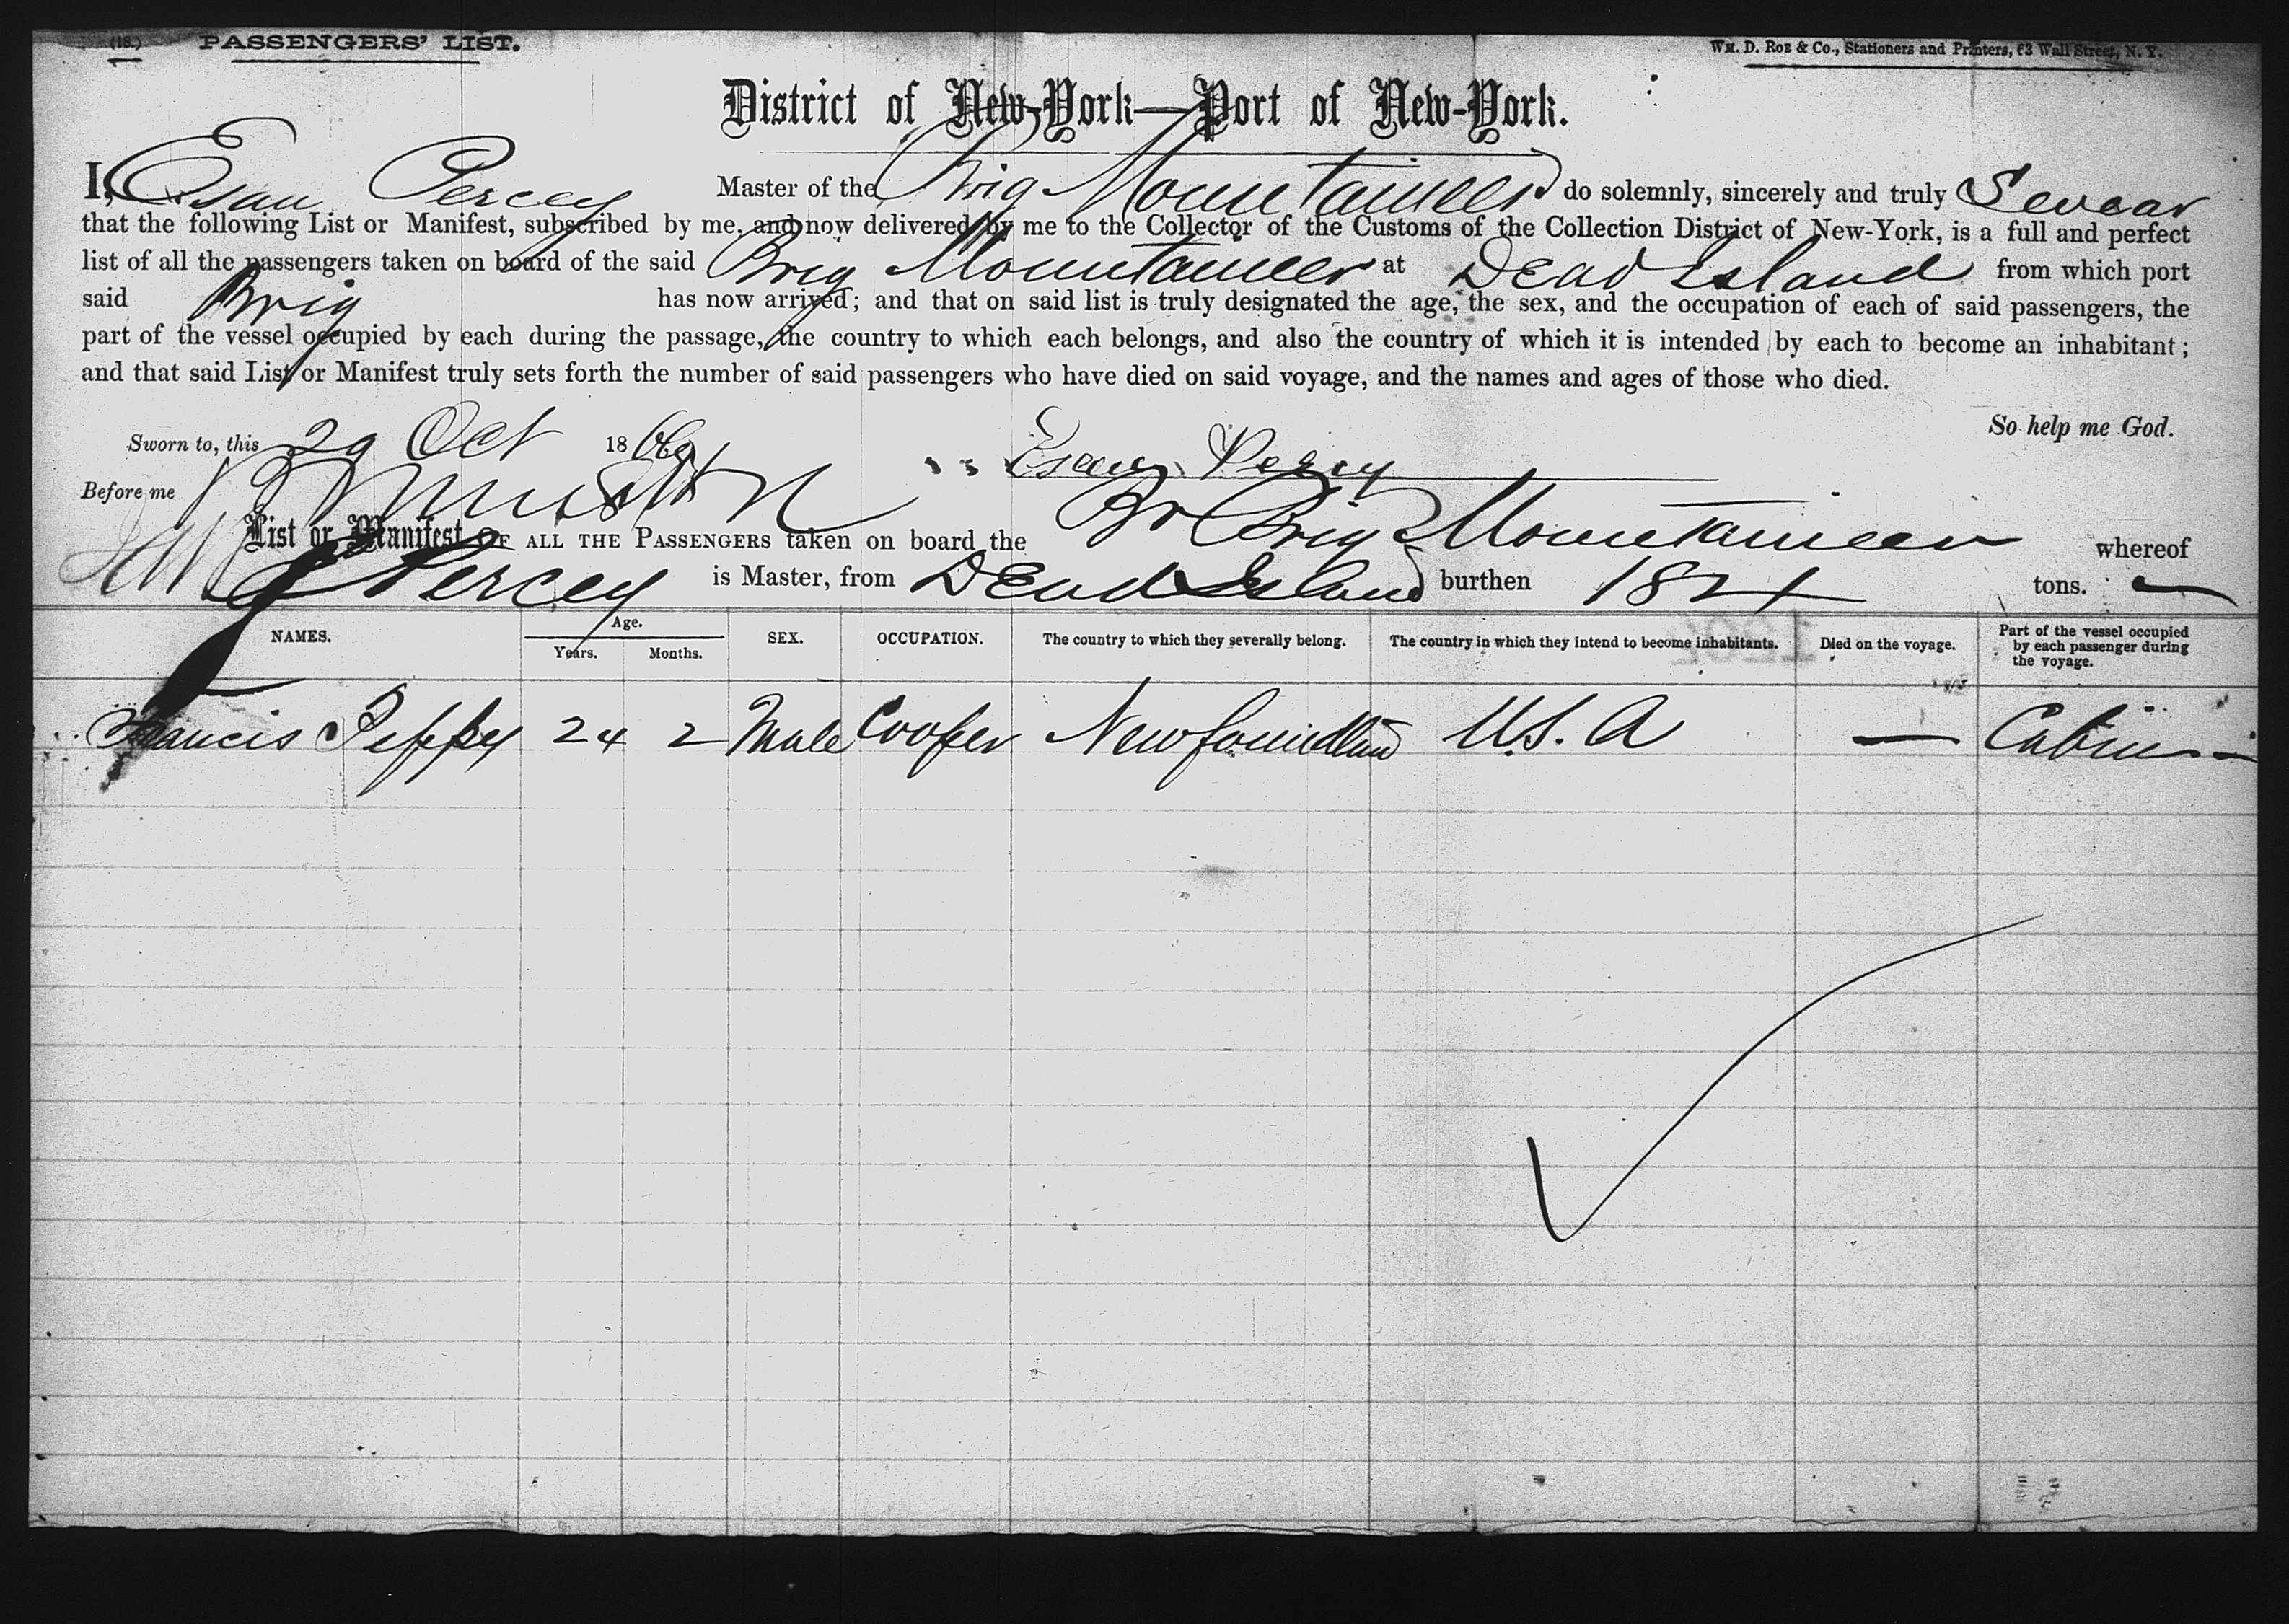 (18.) PASSENGERS' LIST.
WM. D. ROE & Co., Stationers and Printers, 63 Wall Street, N. Y.
District of New-York—Port of New-York.
I, Esau Percey Master of the Brig Mountaineer do solemnly, sincerely and truly Swear
that the following List or Manifest, subscribed by me, and now delivered by me to the Collector of the Customs of the Collection District of New-York, is a full and perfect
list of all the passengers taken on board of the said Brig Mountaineer at Dead Island from which port
said Brig has now arrived; and that on said list is truly designated the age, the sex, and the occupation of each of said passengers, the
part of the vessel occupied by each during the passage, the country to which each belongs, and also the country of which it is intended by each to become an inhabitant;
and that said List or Manifest truly sets forth the number of said passengers who have died on said voyage, and the names and ages of those who died.
So help me God.
Sworn to, this 29 Oct 1866
Esau Percy
Before me
List or Manifest OF ALL THE PASSENGERS taken on board the Br Brig Mountaineer whereof
E Percey is Master, from Dead Island burthen 182 tons.
NAMES. Age. Years. Months. SEX. OCCUPATION. The country to which they severally belong. The country in which they intend to become inhabitants. Died on the voyage. Part of the vessel occupied by each passenger during the voyage.
Francis Peppy 24 2 Male Cooper Newfoundland U.S. A — Cabin